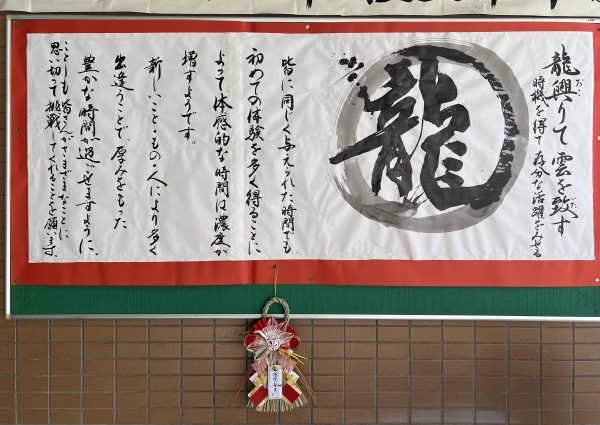 龍興りて雲を致す
時機を得て存分な活躍をみせる
龍
皆に同じく与えられた時間でも、
初めての体験を多く得ることに
よって体感的な時間は濃度が
増すようです。
新しいこと・もの・人により多く
出逢うことで、厚みをもった
豊かな時間が過ごせますように、
ことしも皆さんがさまざまなことに
思い切って挑戦してくれることを願います。